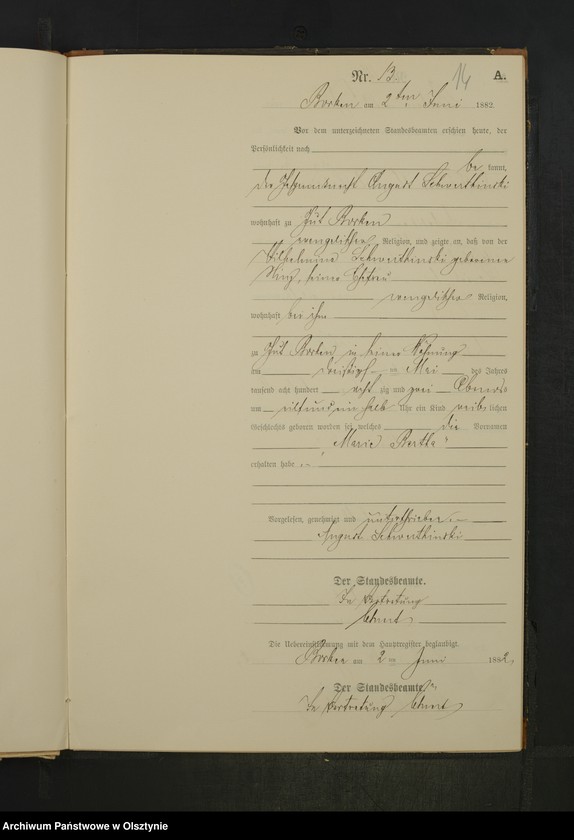 Nr. 13. 14 A.
Borken am 2ten Juni 1882
Vor dem unterzeichneten Standesbeamten erschien heute, der
Persönlichkeit nach
be kannt,
der August
wohnhaft zu Gut Borken
evangelischer Religion, und zeigte an, daß von der
Wilhelmine geborenen
seiner Ehefrau
evangelischer Religion,
wohnhaft bei ihm
zu Gut Borken in seiner Wohnung
am dreißigsten Mai des Jahres
tausend acht hundert acht zig und zwei Abends
um eilf und ein halb Uhr ein Kind weib lichen
Geschlechts geboren worden sei, welches die Vornamen
„Marie Bertha"
erhalten habe.
Vorgelesen, genehmigt und unterschrieben
August
Der Standesbeamte.
In Vertretung
Die Uebereinstimmung mit dem Hauptregister beglaubigt.
Borken am 2ten Juni 1882
Der Standesbeamte.
In Vertretung
Archiwum Państwowe w Olsztynie